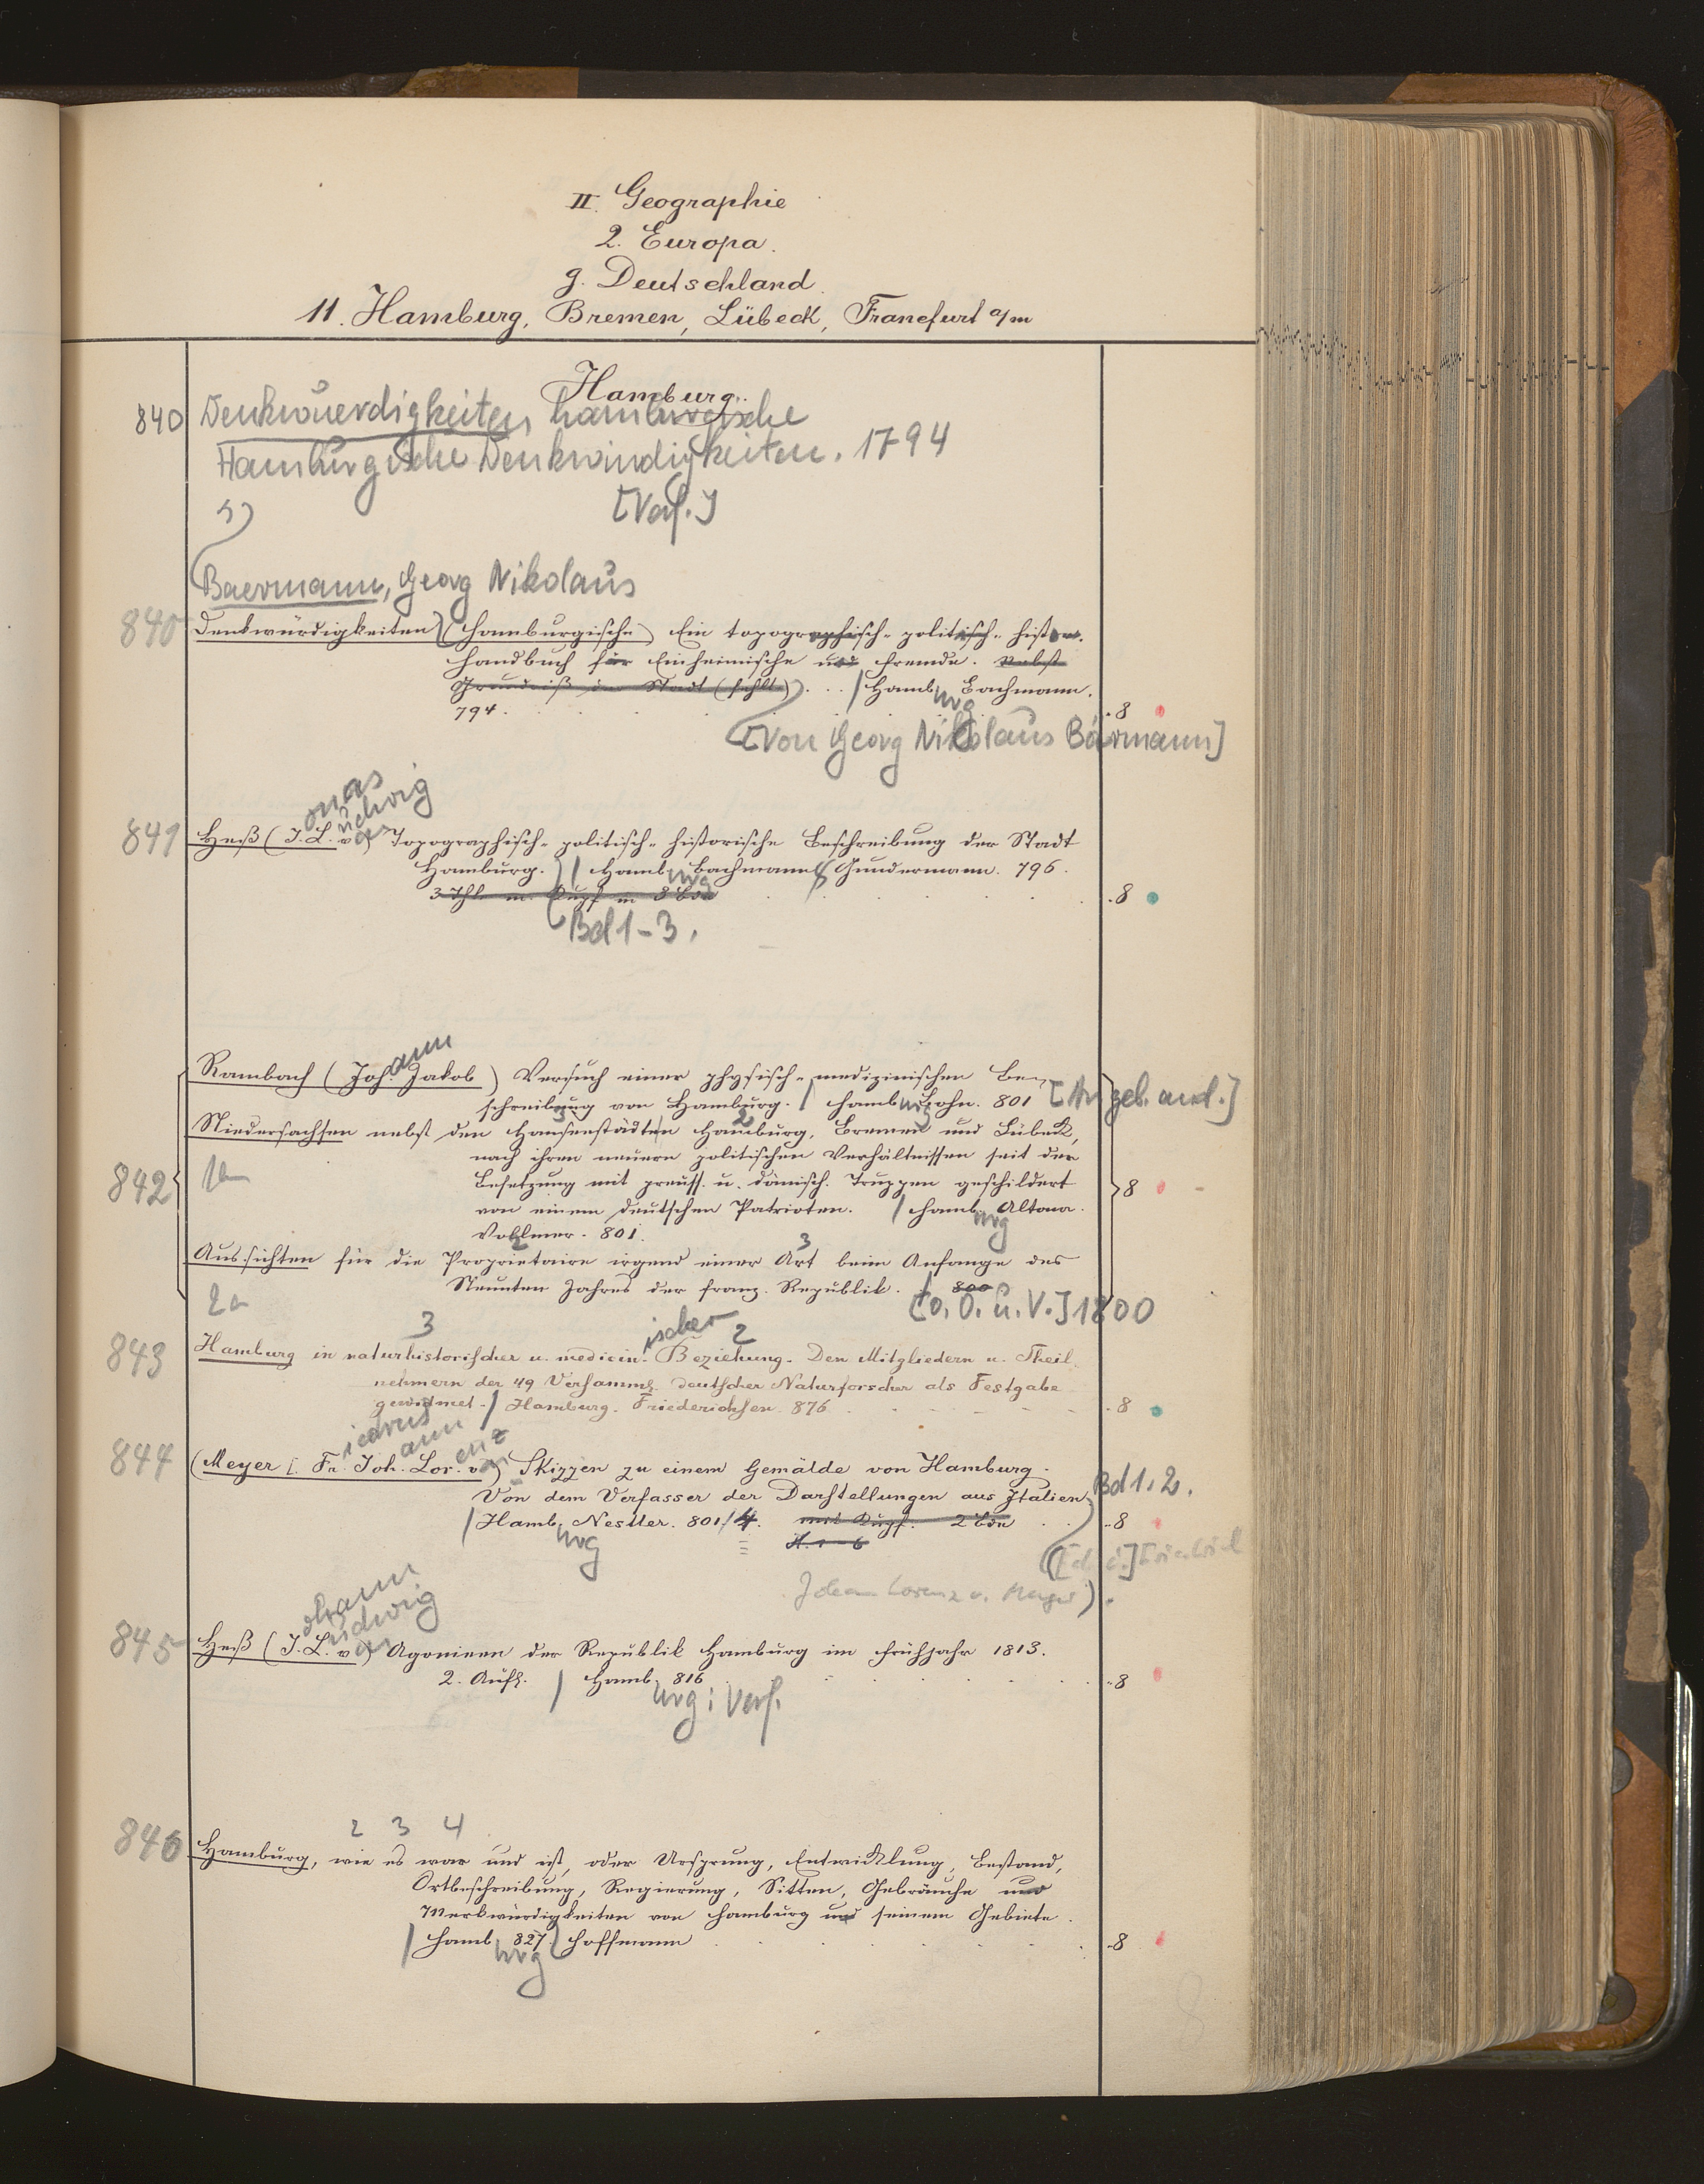 II. Geographie
2. Europa.
g. Deutschland.
11. Hamburg, Bremen, Lübeck, Francfurt a/m
Hamburg.
840 Denkwuerdigkeiten, hamburgische
Hamburgische Denkwürdigkeiten. 1794
[Verf.]
Baermann, Georg Nikolaus
840 Denkwürdigkeiten (Hamburgische) Ein topographisch-politisch-histor.
Handbuch für Einheimische und Fremde. Nebst
Grundriß der Stadt (fehlt) . . . / Hamburg Bachmann.
794. 8
[Von Georg Nikolaus Bärmann]
onas udwig
841 Heß (J. L. von) Topographisch-politisch-historische Beschreibung der Stadt
Hamburg. / Hamburg Bachmann & Gundermann. 796.
3 Thle m. Kupf in 3 Bde 8
Bd 1-3.
ann
Rambach (Joh. Jakob) Versuch einer physisch-medizinischen Be-
schreibung von Hamburg. / Hamburg Bohn. 801 [An geb. and.]
3 2
Niedersachsen nebst den Hansestädten Hamburg, Bremen und Lübeck,
nach ihren neuern politischen Verhältnissen seit der
842 1a Besetzung mit preuss. u. dänisch. Truppen geschildert 8
von einem deutschen Patrioten. / Hamburg Altona.
Vollmer. 801.
2 3
Aussichten für die Proprietaire irgend einer Art beim Anfange des
Neunten Jahres der franz. Republik. 800
2a [o. O. u. V.] 1800
3 ischer 2
843 Hamburg in naturhistorischer u. medicin. Beziehung. Den Mitgliedern u. Theil-
nehmern der 49 Versamml. deutscher Naturforscher als Festgabe
gewidmet. / Hamburg. Friederichsen 876 8
iedrich ann enz
844 (Meyer [. Fr. Joh. Lor. von) Skizzen zu einem Gemälde von Hamburg.
Von dem Verfasser der Darstellungen aus Italien. Bd 1. 2.
/ Hamburg Nestler. 801/4. mit Kupf. 2 Bde 8
H. 1-6
([d. i.] Friedrich
Johann Lorenz v. Meyer).
ohann udwig
845 Heß (J. L. von) Agonieen der Republik Hamburg im Frühjahr 1813.
2. Aufl. / Hamb. 816 8
urg: Verf.
2 3 4
846 Hamburg, wie es war und ist, oder Ursprung, Entwicklung, Bestand,
Ortbeschreibung, Regierung, Sitten, Gebräuche und
Merkwürdigkeiten von Hamburg und seinem Gebiete.
/ Hamburg 827. Hoffmann 8
8